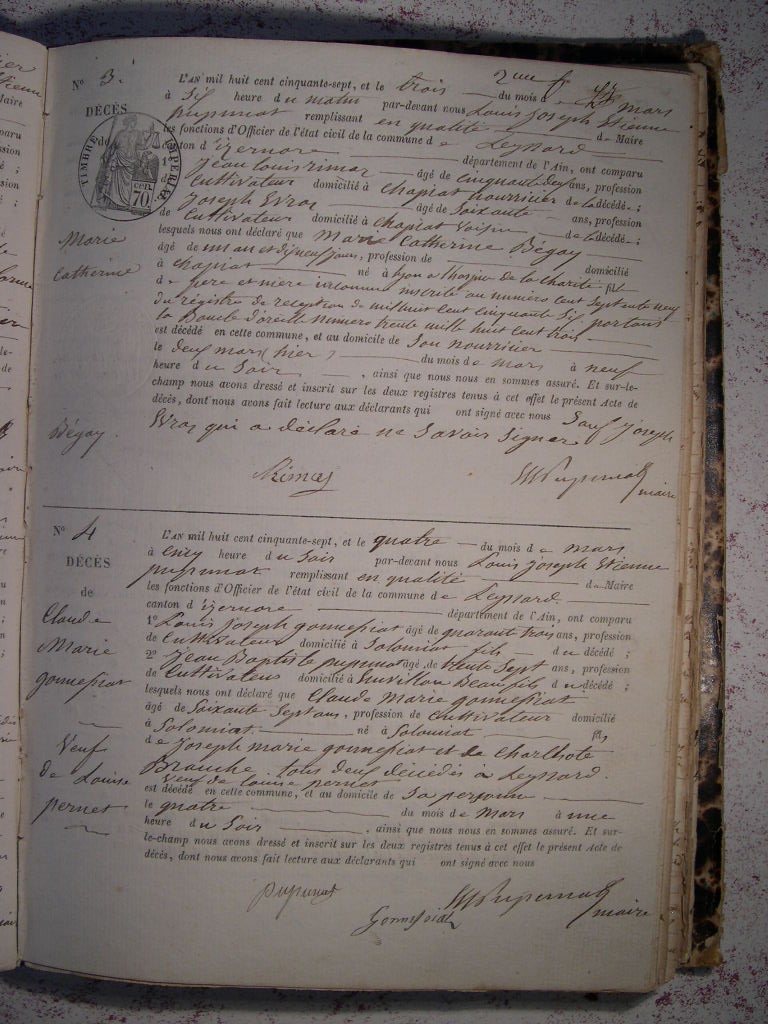 2me f
N° 3.
DÉCÈS
de
TIMBRE IMPERIAL
70 cen.
Marie
Catherine
Bégoy
L'AN mil huit cent cinquante-sept, et le trois du mois de mars
à Six heure du matin par-devant nous Louis Joseph Etienne
pupunat remplissant en qualité de Maire
les fonctions d'Officier de l'état civil de la commune de Leyssard
canton d'izernore département de l'Ain, ont comparu
1° Jean Louis âgé de Cinquante ans, profession
de Cultivateur domicilié à Chapiat nourricier de la décédée ;
Joseph Evroz âgé de Soixante ans, profession
de Cultivateur domicilié à Chapiat Voisin de la décédée ;
lesquels nous ont déclaré que Marie Catherine Bégoy
âgé de un an et jours, profession de domicilié
à Chapiat né à Lyon à l'hospice de la charité fille
de père et mère inconnus inscrite au numéro Cent Septante neuf
du régistre de reception de mil huit Cent Cinquante Six portant
la Boucle d'oreille numéro trente mille huit Cent trois
est décédé en cette commune, et au domicile de Son nourricier
le deux mars (hier) du mois de mars à neuf
heure du Soir, ainsi que nous nous en sommes assuré. Et sur-le-
champ nous avons dressé et inscrit sur les deux registres tenus à cet effet le présent Acte de
décès, dont nous avons fait lecture aux déclarants qui ont signé avec nous Sauf joseph
Evroz qui a déclaré ne Savoir Signer
Pupunat maire
N° 4
DÉCÈS
de
Claude
Marie
gonnessiat
Veuf
de Louise
pernet
L'AN mil huit cent cinquante-sept, et le quatre du mois de mars
à Cinq heure du Soir par-devant nous Louis joseph Etienne
pupunat remplissant en qualité de Maire
les fonctions d'Officier de l'état civil de la commune de Leyssard.
canton d'izernore département de l'Ain, ont comparu
1° Louis Joseph gonnessiat âgé de quarante trois ans, profession
de Cultivateur domicilié à Solomiat fils du décédé ;
2° Jean Baptiste pupunat âgé de trente Sept ans, profession
de Cultivateur domicilié à Beaufils du décédé ;
lesquels nous ont déclaré que Claude Marie gonnessiat
âgé de Soixante Sept ans, profession de Cultivateur domicilié
à Solomiat né à Solomiat fils
de Joseph marie gonnessiat et de Charlhote
Branche, tous deux décédés à Leyssard.
Veuf de Louise pernet
est décédé en cette commune, et au domicile de Sa personne
le quatre du mois de Mars à une
heure du Soir, ainsi que nous nous en sommes assuré. Et sur-
le-champ nous avons dressé et inscrit sur les deux registres tenus à cet effet le présent Acte de
décès, dont nous avons fait lecture aux déclarants qui ont signé avec nous
Pupunat
Pupunat maire
Gonnessiat